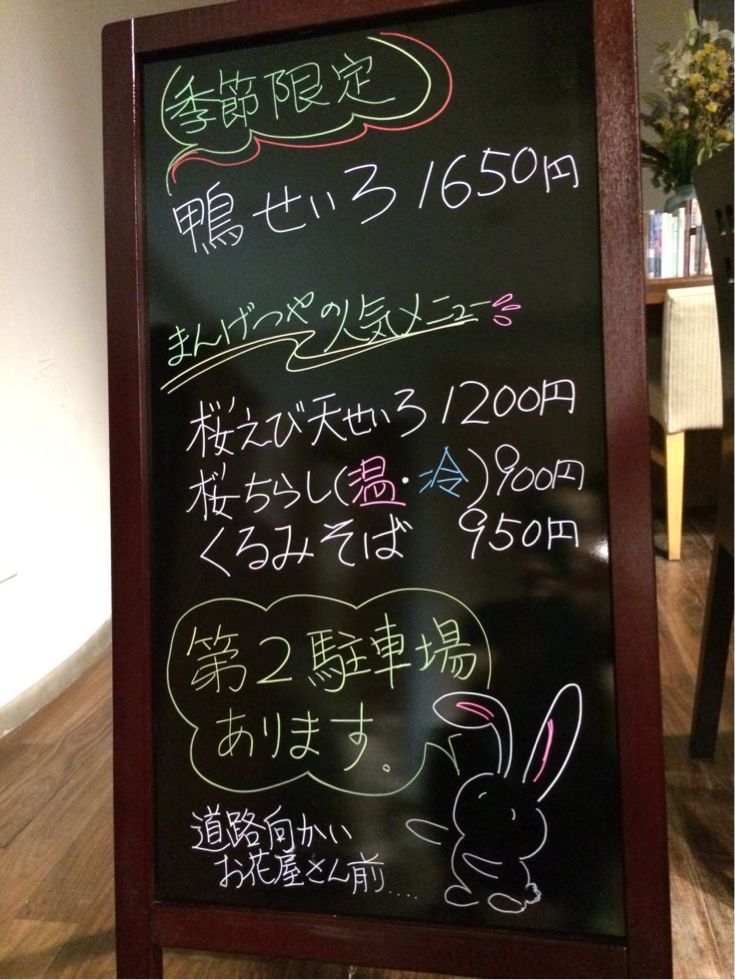 季節限定
鴨せいろ 1650円
まんげつやの人気メニュー
桜えび天せいろ 1200円
桜ちらし(温・冷) 900円
くるみそば 950円
第2駐車場
あります。
道路向かい
お花屋さん前....